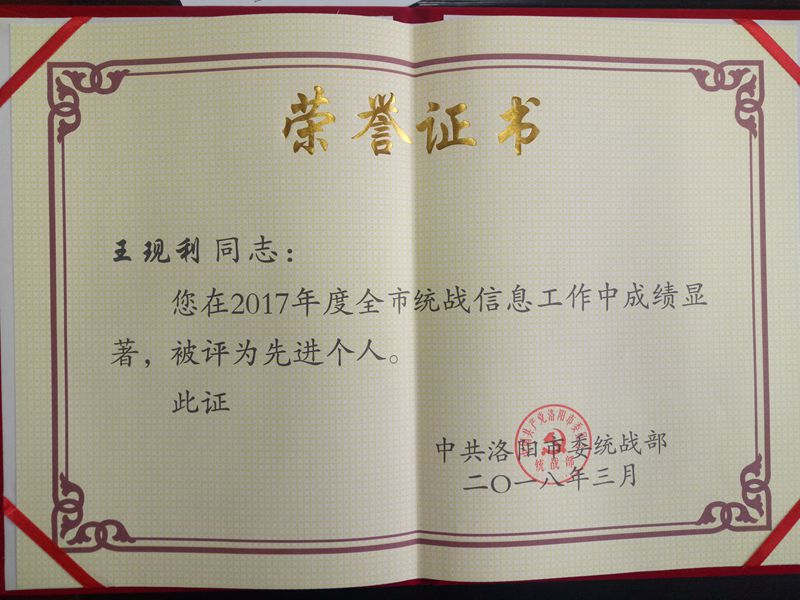 荣誉证书
王现利同志：
您在2017年度全市统战信息工作中成绩显
著，被评为先进个人。
此证
中共洛阳市委统战部
二〇一八年三月
中国共产党洛阳市委员会
统战部